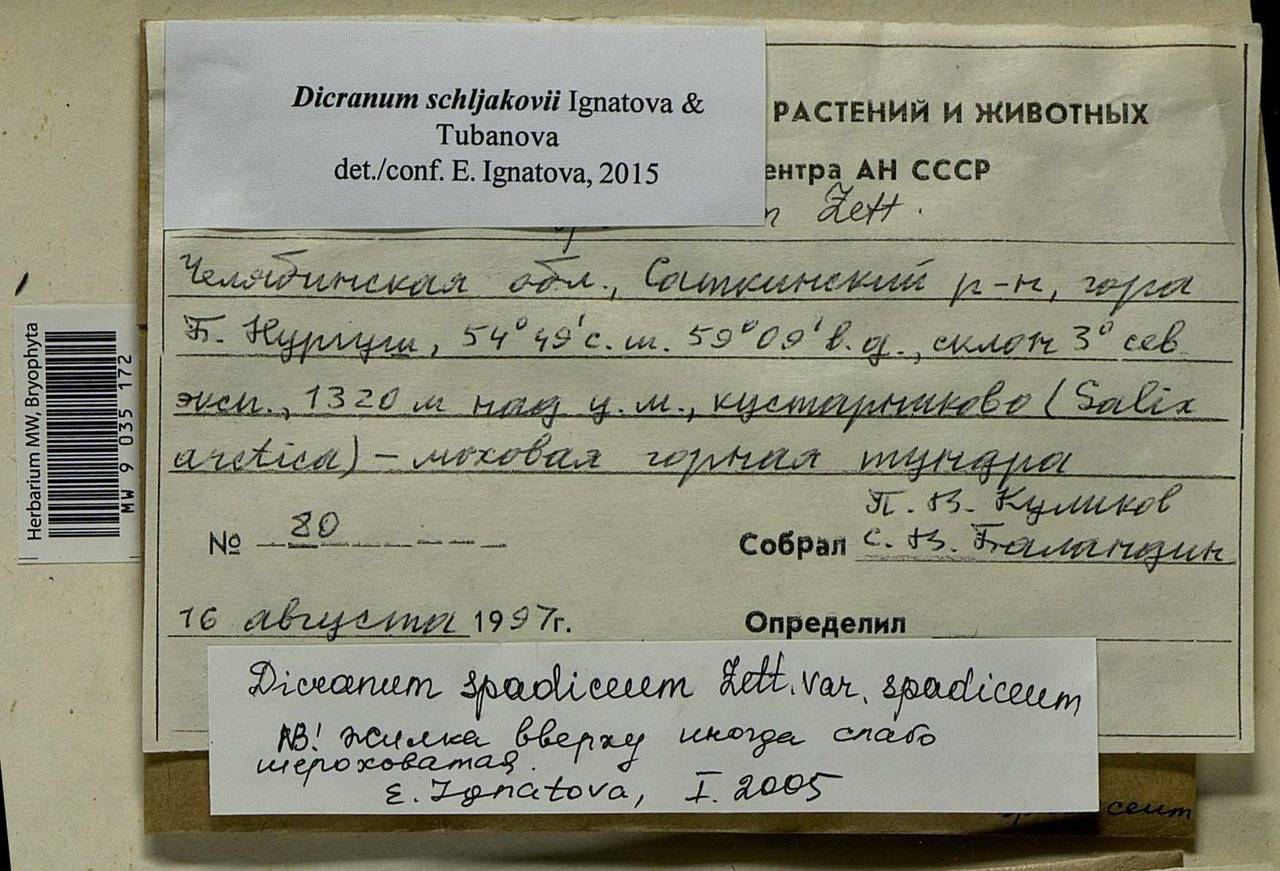 Dicranum schljakovii Ignatova &
Tubanova
det./conf. E. Ignatova, 2015
РАСТЕНИЙ И ЖИВОТНЫХ
ентра АН СССР
Zett.
Челябинская обл., Саткинский р-н, гора
Б. Нургуш, 54°49'с.ш. 59°09'в.д., склон 3° сев.
эксп., 1320 м над у.м., кустарничково (Salix
arctica) – моховая горная тундра
П. В. Куликов
№ 80 Собрал С. В. Баландин
16 августа 1997г. Определил
Dicranum spadiceum Zett. var. spadiceum
NB! жилка вверху иногда слабо
шероховатая.
E. Ignatova, I. 2005
ceum
Herbarium MW, Bryophyta
MW 9 035 172